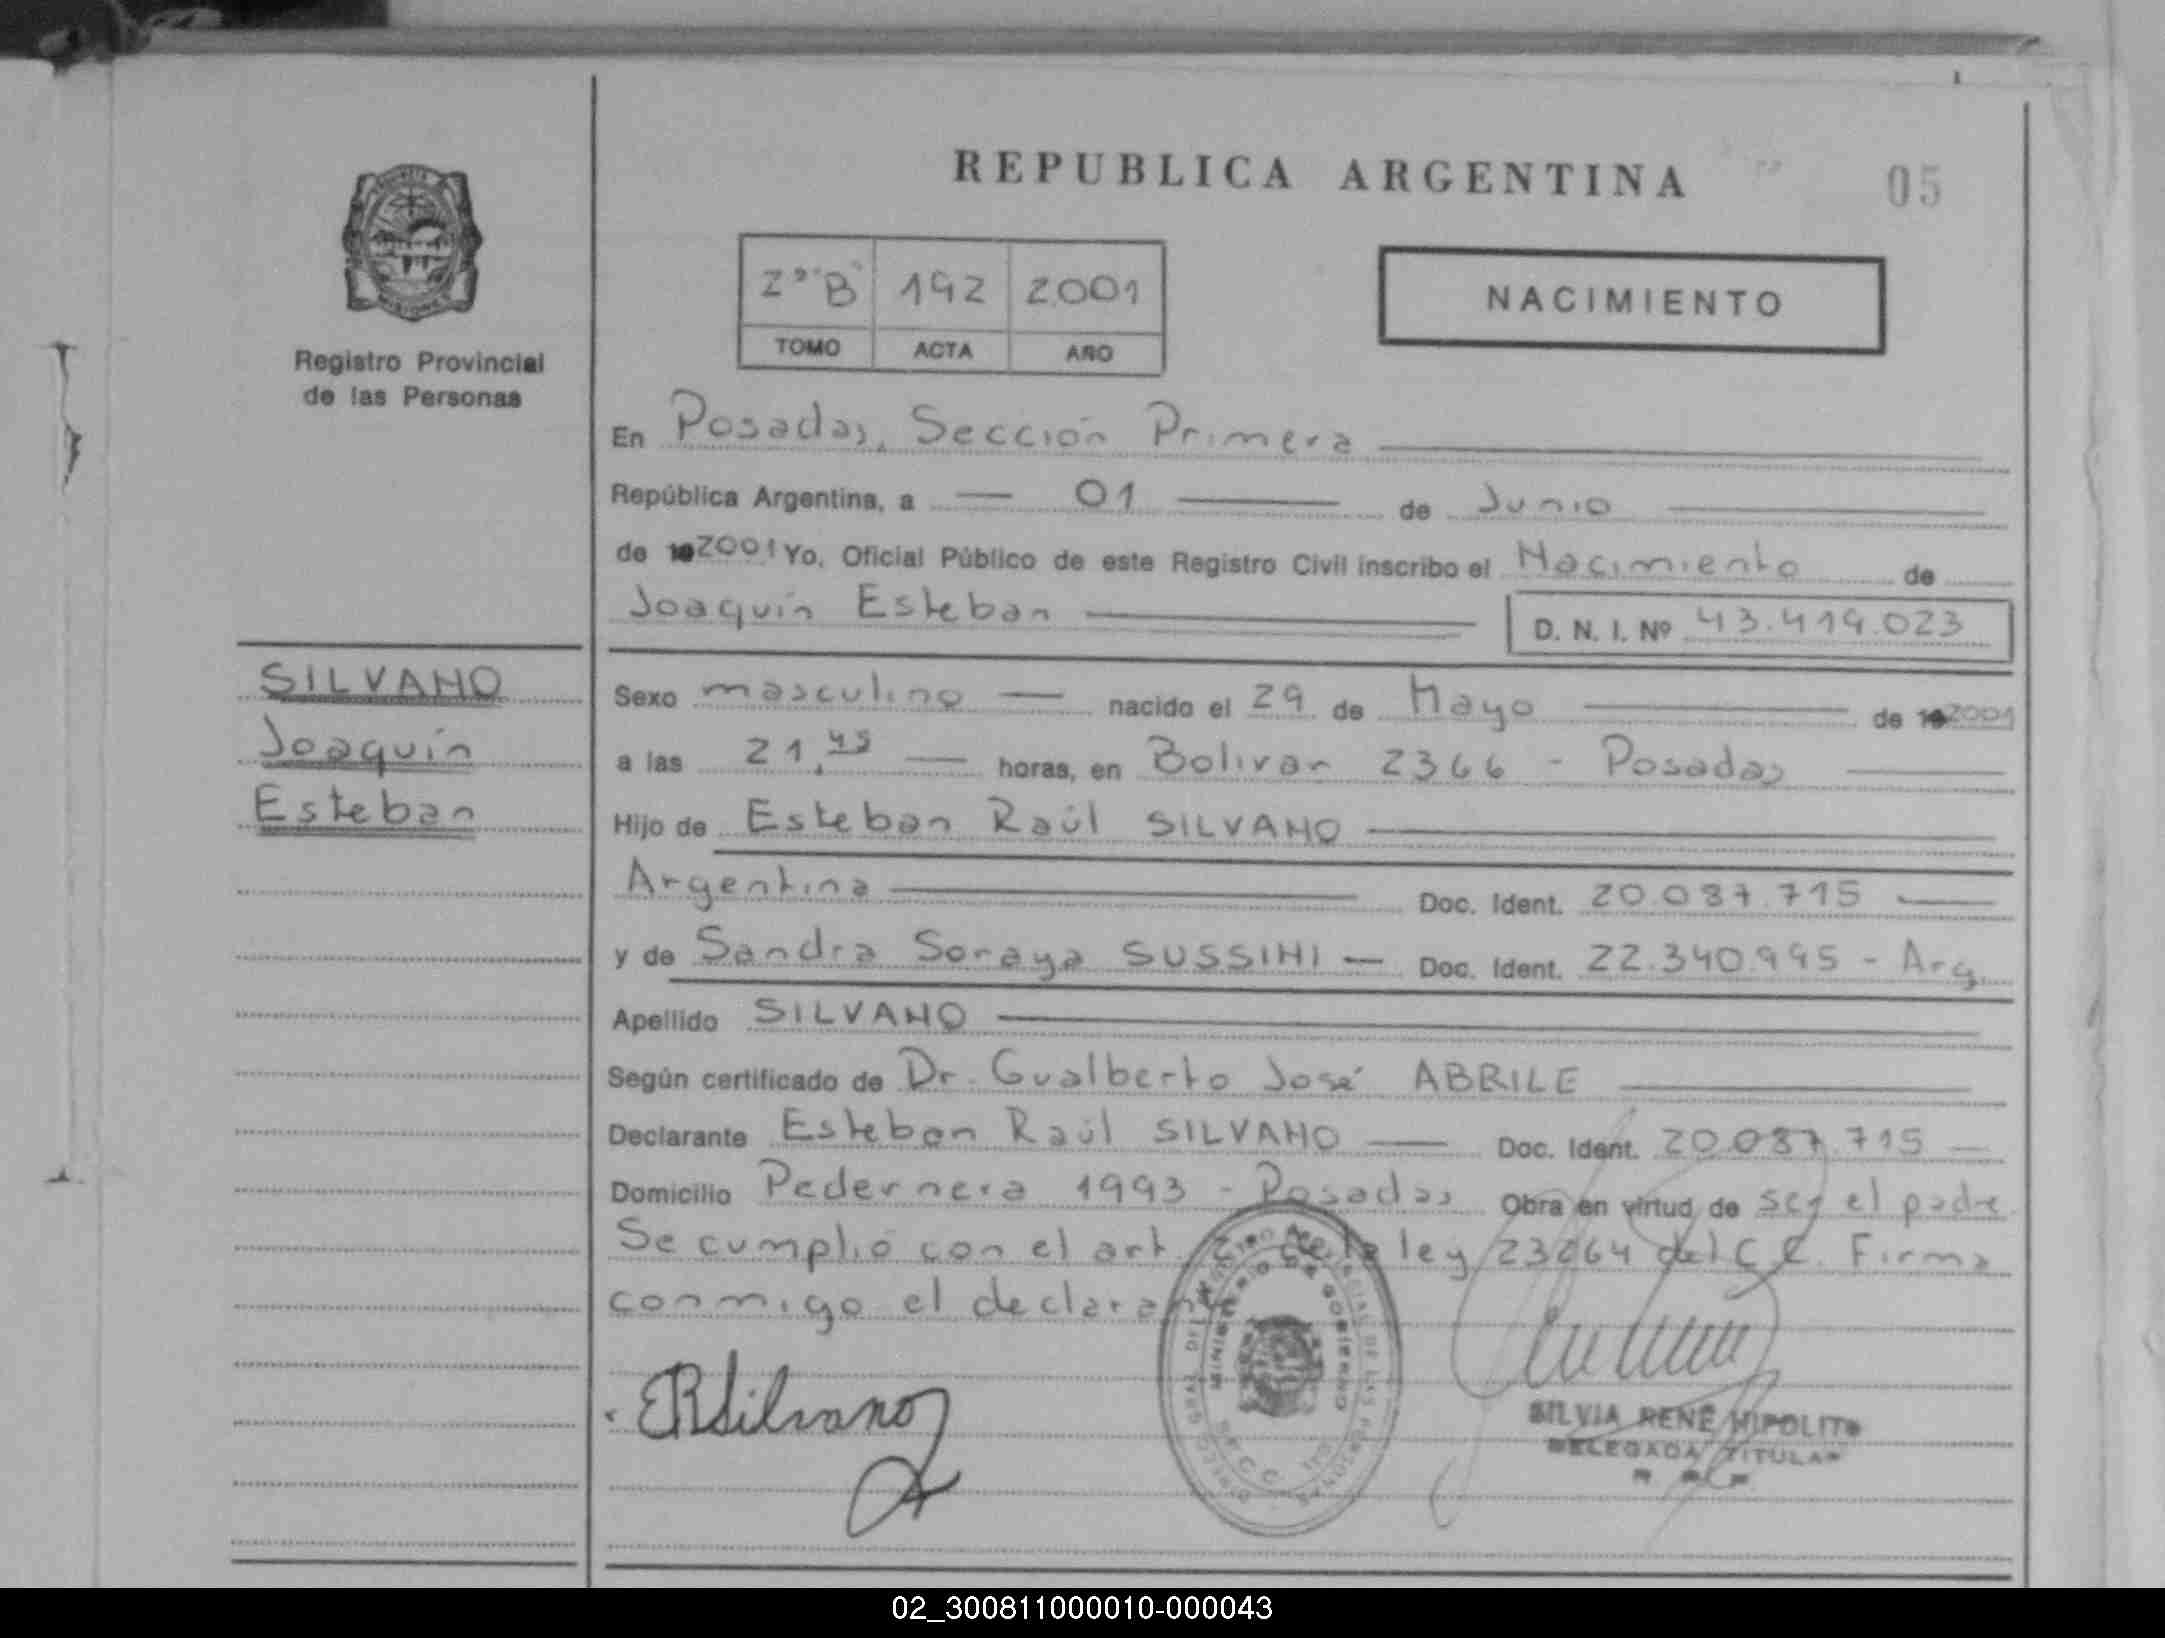 REPUBLICA ARGENTINA
05
2º "B" 192 2001
TOMO ACTA AÑO
NACIMIENTO
Registro Provincial
de las Personas
En Posadas, Sección Primera
República Argentina, a 01 de Junio
de 2001 Yo, Oficial Público de este Registro Civil inscribo el Nacimiento de
Joaquín Esteban D. N. I. Nº 43.419.023
SILVANO
Joaquín
Esteban
Sexo masculino nacido el 29 de Mayo de 2001
a las 21,45 horas, en Bolivar 2366 - Posadas
Hijo de Esteban Raúl SILVANO
Argentina Doc. Ident. 20.087.715
y de Sandra Soraya SUSSINI Doc. Ident. 22.340.995 - Arg.
Apellido SILVANO
Según certificado de Dr. Gualberto José ABRILE
Declarante Esteban Raúl SILVANO Doc. Ident. 20.087.715
Domicilio Pedernera 1993 - Posadas Obra en virtud de ser el padre
Se cumplió con el art. de la ley 23264 del C.C. Firma
conmigo el declarante
ERSilvano
MINISTERIO DE GOBIERNO
SILVIA RENE HIPOLITO
DELEGADA TITULAR
02_300811000010-000043